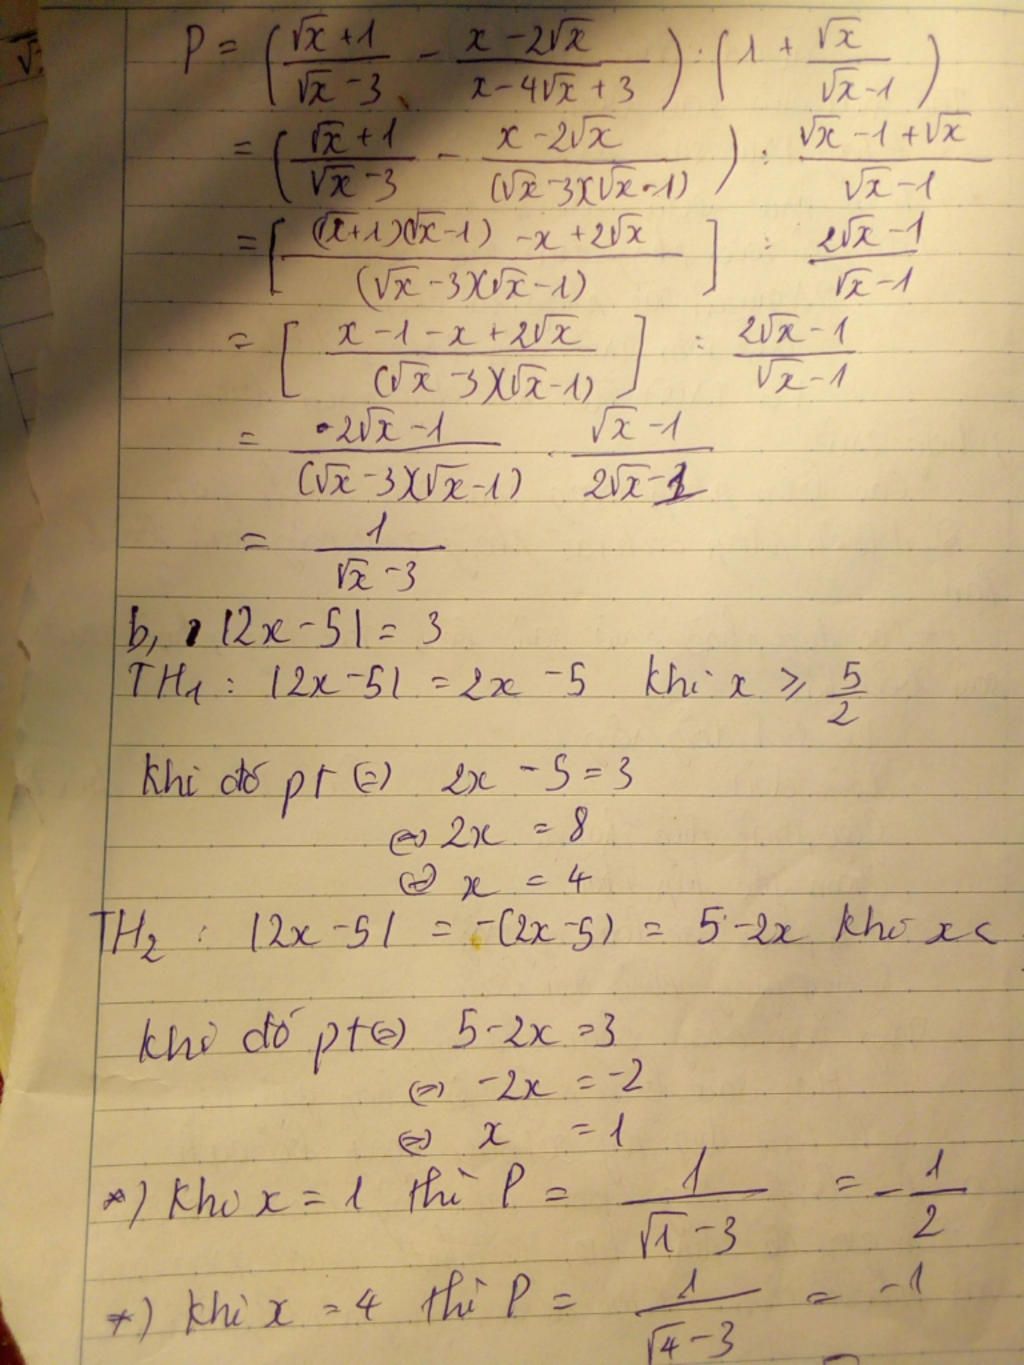 P = ( (√x + 1)/(√x - 3) - (x - 2√x)/(x - 4√x + 3) ) : ( 1 + √x/(√x - 1) )
= ( (√x + 1)/(√x - 3) - (x - 2√x)/((√x - 3)(√x - 1)) ) : (√x - 1 + √x)/(√x - 1)
= [ ((√x + 1)(√x - 1) - x + 2√x)/((√x - 3)(√x - 1)) ] : (2√x - 1)/(√x - 1)
= [ (x - 1 - x + 2√x)/((√x - 3)(√x - 1)) ] : (2√x - 1)/(√x - 1)
= (2√x - 1)/((√x - 3)(√x - 1)) . (√x - 1)/(2√x - 1)
= 1/(√x - 3)
b, |2x - 5| = 3
TH1 : |2x - 5| = 2x - 5 khi x ⩾ 5/2
Khi đó pt ⇔ 2x - 5 = 3
⇔ 2x = 8
⇔ x = 4
TH2 : |2x - 5| = -(2x - 5) = 5 - 2x khi x <
Khi đó pt ⇔ 5 - 2x = 3
⇔ -2x = -2
⇔ x = 1
*) Khi x = 1 thì P = 1/(√1 - 3) = -1/2
*) Khi x = 4 thì P = 1/(√4 - 3) = -1